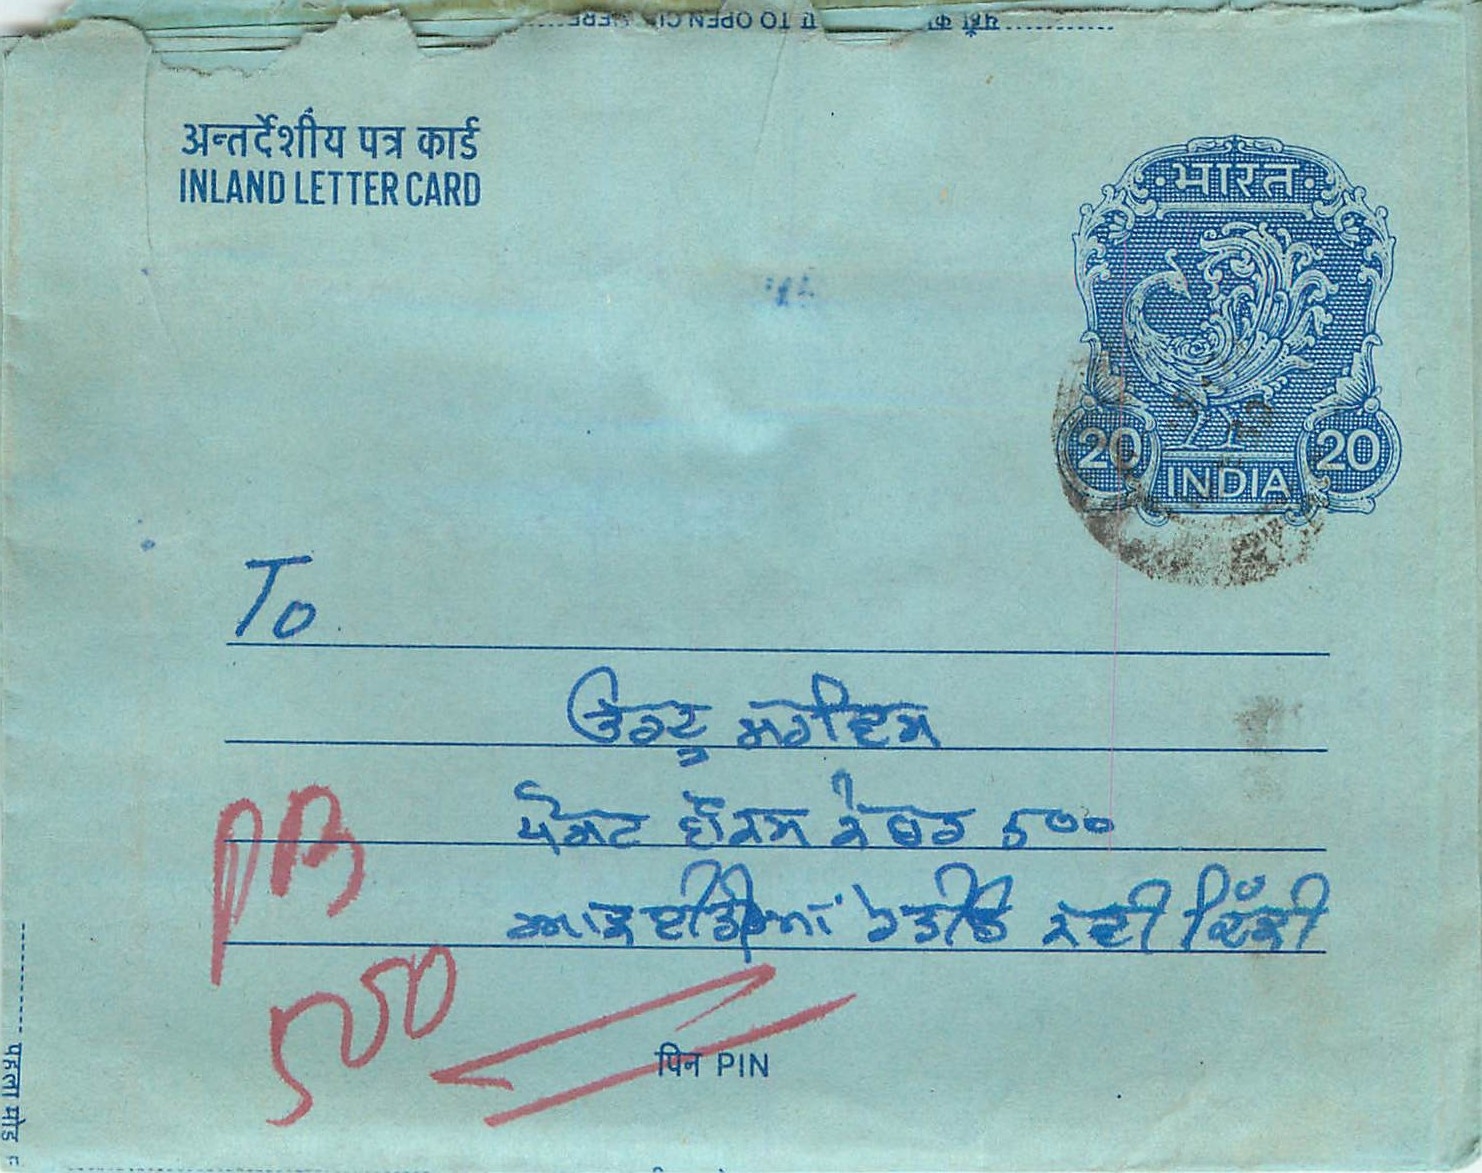 TO OPEN CUT HERE
अन्तर्देशीय पत्र कार्ड
INLAND LETTER CARD
भारत
20 20
INDIA
To
ਉਰਦੂ ਸਰਵਿਸ
ਪੋਸਟ ਬੌਕਸ ਨੰਬਰ 500
ਆਲ ਇੰਡੀਆ ਰੇਡੀਓ ਨਵੀਂ ਦਿੱਲੀ
PB
500
पिन PIN
पहला मोड़